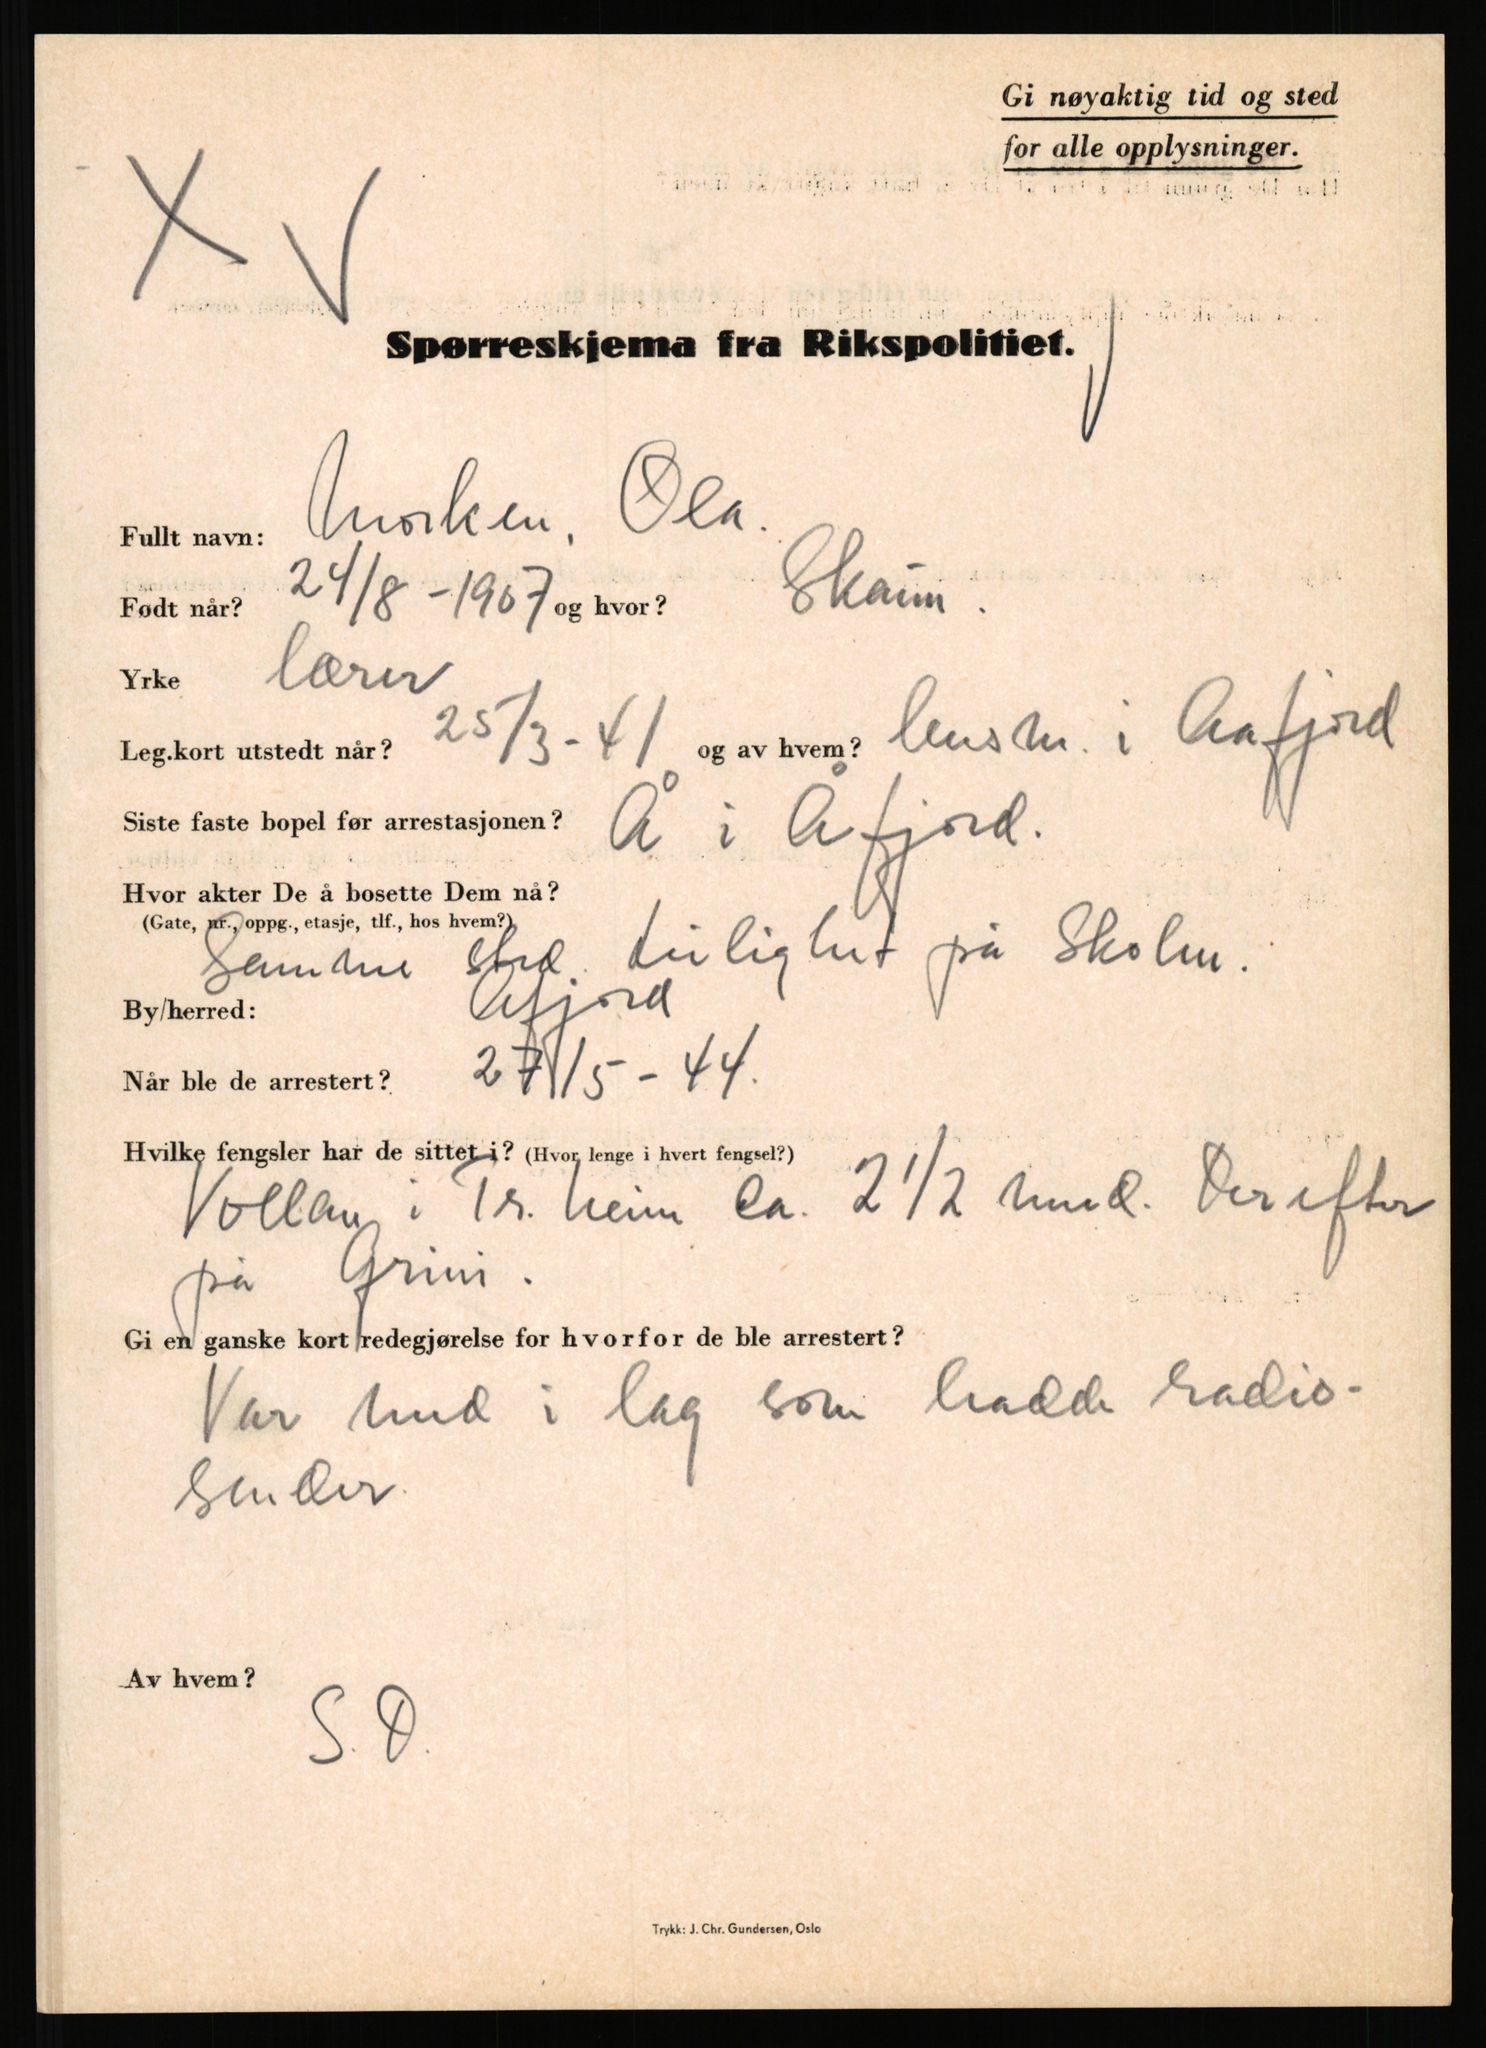 Gi nøyaktig tid og sted
for alle opplysninger.
X V
Spørreskjema fra Rikspolitiet.
Fullt navn: Morken, Ola.
Født når? 24/8 - 1907 og hvor? Skaun.
Yrke lærer
Leg.kort utstedt når? 25/3 - 41 og av hvem? lensm. i Aafjord
Siste faste bopel før arrestasjonen? Å i Åfjord.
Hvor akter De å bosette Dem nå?
(Gate, nr., oppg., etasje, tlf., hos hvem?)
Samme sted. Leilighet på Skolen.
By/herred: Åfjord
Når ble de arrestert? 27/5 - 44.
Hvilke fengsler har de sittet i? (Hvor lenge i hvert fengsel?)
Vollan i Tr.heim ca. 2 1/2 mnd. Derefter
på Grini.
Gi en ganske kort redegjørelse for hvorfor de ble arrestert?
Var med i lag som hadde radio-
sender.
Av hvem?
S.D.
Trykk: J. Chr. Gundersen, Oslo